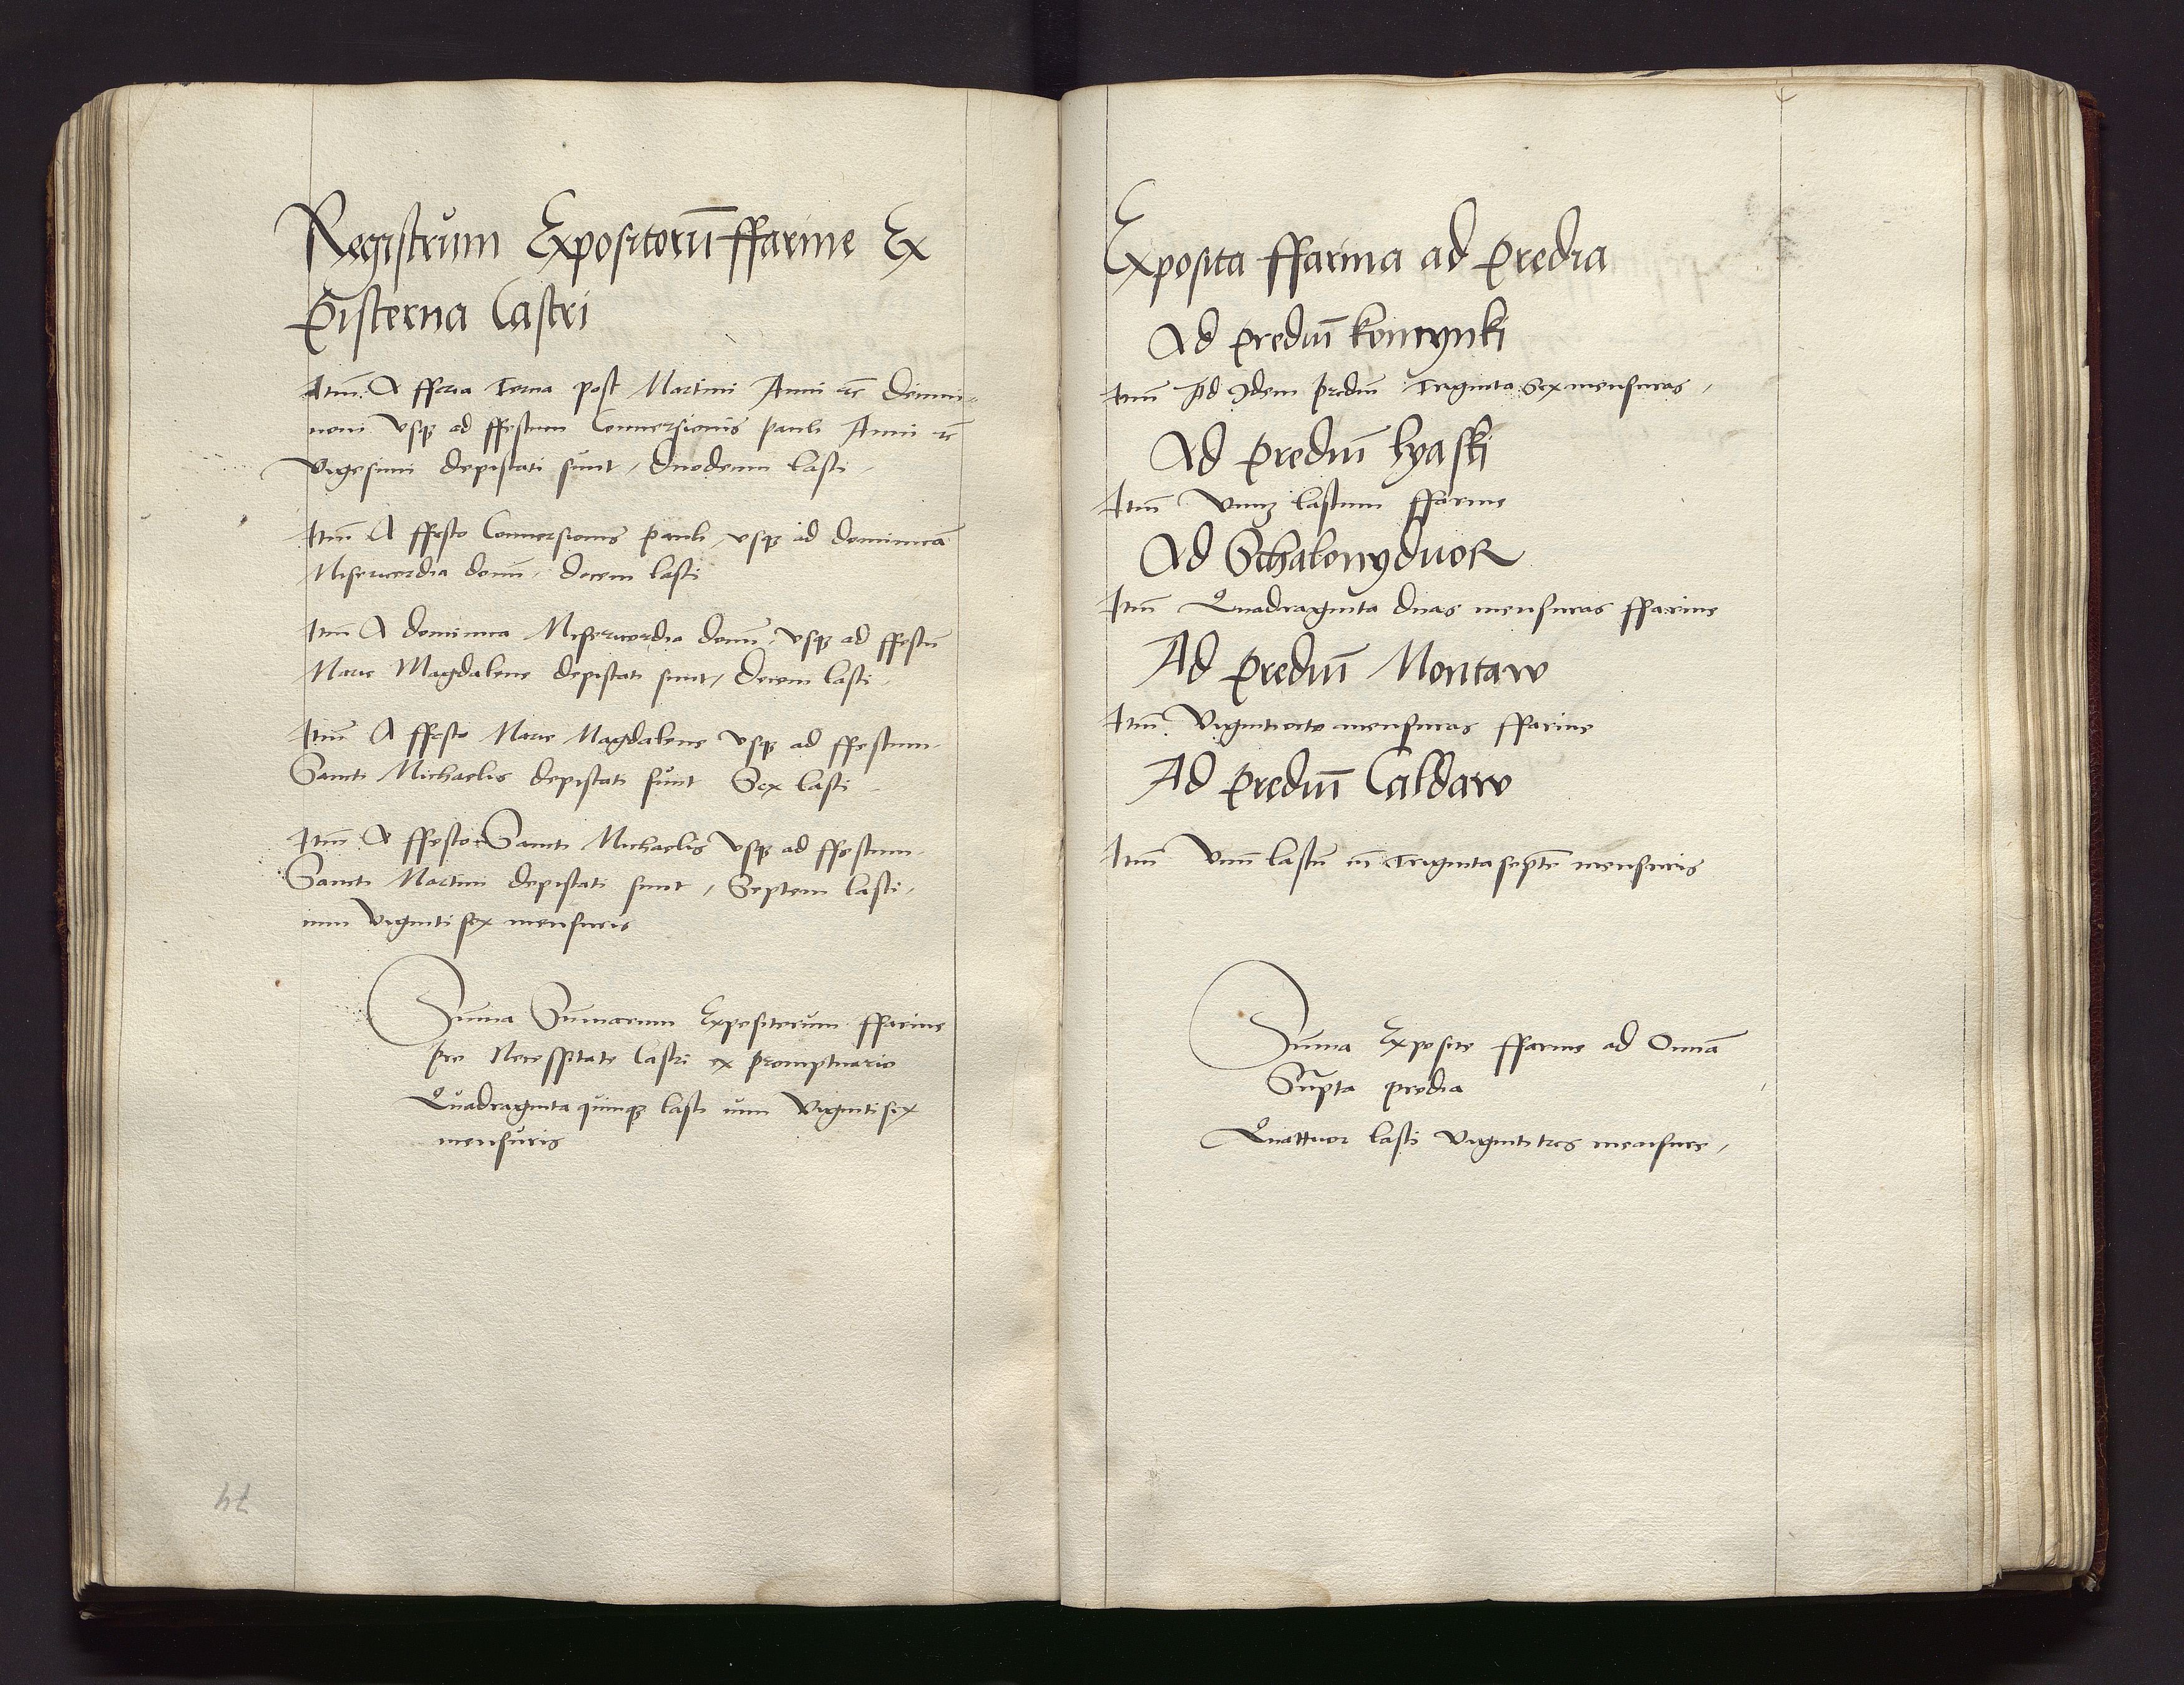 Registrum Expositorū ffarine Ex
Pisterna Castri
Itm̄ A fferia Tercia post Martini Anni rc̄ Decimi-
noni vsqȝ ad ffestum Conuersionis pauli Anni rc̄
Vigesimi depistati sunt, duodecim lasti,
Itm̄ A ffesto Conuersionis pauli, vsqȝ ad dominicā
Misericordia domī, decem lasti
Itm̄ A dominica Misericordia domī, vsqȝ ad ffestū
Marie Magdalene depistati sunt, decem lasti,
Itm̄ A ffesto Marie Magdalene vsqȝ ad ffestum
Sancti Michaelis depistati sunt Sex lasti
Itm̄ A ffesto Sancti Michaelis vsqȝ ad ffestum
Sancti Martini depistati sunt, Septem lasti,
cum Viginti sex mensuris
Sum̄a Sum̄arum Expositorum ffarine
pro Necessitate Castri ex promptuario
Quadraginta quinqȝ lasti cum Viginti sex
mensuris
74
Exposita ffarina ad predia
Ad prediū koncynki
Itm̄ Ad Idem prediū Triginta Sex mensuras,
Ad prediū lyaski
Itm̄ Vnuȝ lastum ffarine
Ad Schalonydvor
Itm̄ Quadraginta duas mensuras ffarine
Ad prediū Montaw
Itm̄ Vigintiocto mensuras ffarine
Ad prediū Caldaw
Itm̄ Vnū lastū cū Triginta septē mensuris
Sum̄a Exposite ffarine ad Om̄ia
Supͣta predia
Quattuor lasti Viginti tres mensure,